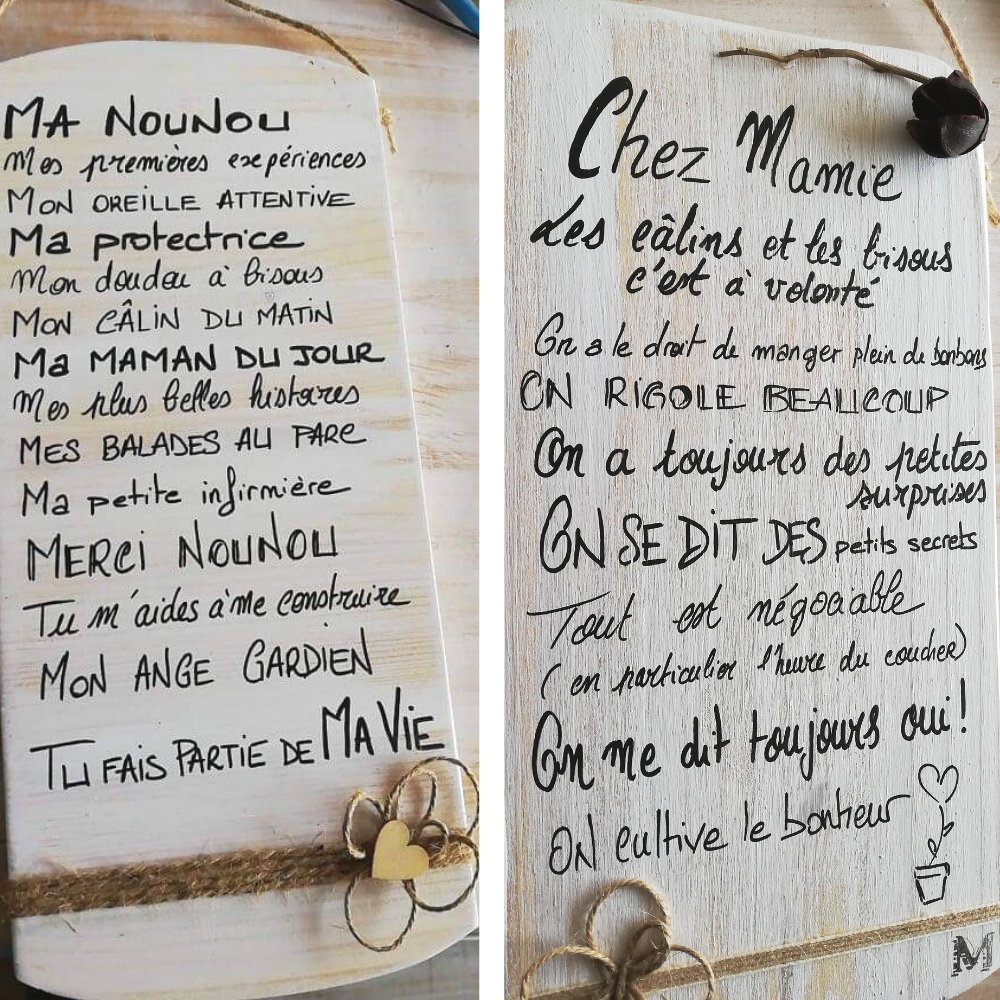 MA NOUNOU
Mes premières expériences
MON OREILLE ATTENTIVE
Ma protectrice
Mon doudou à bisous
MON CÂLIN DU MATIN
Ma MAMAN DU JOUR
Mes plus belles histoires
MES BALADES AU PARC
Ma petite infirmière
MERCi NOUNOU
Tu m'aides à me construire
MON ANGE GARDIEN
TU FAIS PARTIE DE MA VIE
Chez Mamie
Les câlins et les bisous
c'est à volonté
On a le droit de manger plein de bonbons
ON RIGOLE BEAUCOUP
On a toujours des petites
surprises
ON SE DIT DES petits secrets
Tout est négociable
(en particulier l'heure du coucher)
On me dit toujours oui!
ON cultive le bonheur
M